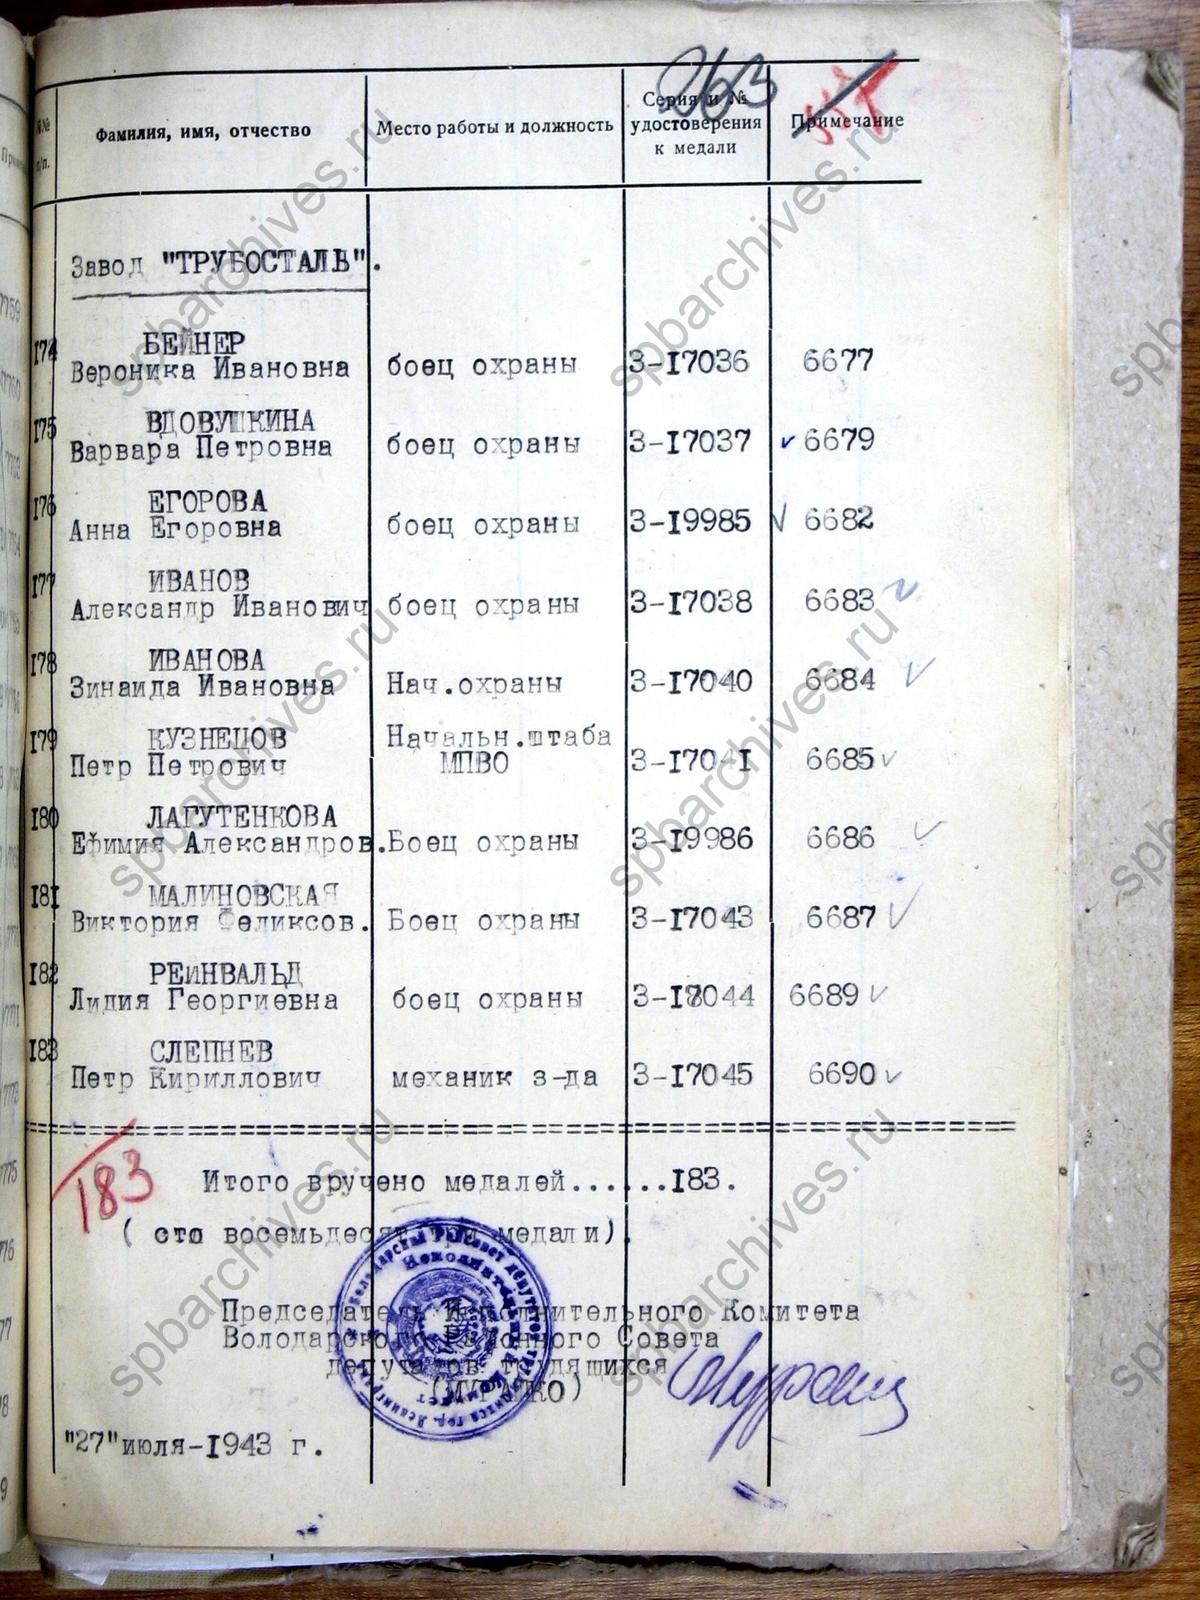 263
№№ п/п.
Фамилия, имя, отчество
Место работы и должность
Серия и № удостоверения к медали
Примечание
Завод "ТРУБОСТАЛЬ".
174 БЕЙНЕР
Вероника Ивановна боец охраны З-17036 6677
175 ВДОВУШКИНА
Варвара Петровна боец охраны З-17037 6679
176 ЕГОРОВА
Анна Егоровна боец охраны З-19985 6682
177 ИВАНОВ
Александр Иванович боец охраны З-17038 6683
178 ИВАНОВА
Зинаида Ивановна Нач.охраны З-17040 6684
179 КУЗНЕЦОВ Начальн.штаба
Петр Петрович МПВО З-17041 6685
180 ЛАГУТЕНКОВА
Ефимия Александров. Боец охраны З-19986 6686
181 МАЛИНОВСКАЯ
Виктория Феликсов. Боец охраны З-17043 6687
182 РЕИНВАЛЬД
Лидия Георгиевна боец охраны З-17044 6689
183 СЛЕПНЕВ
Петр Кириллович механик з-да З-17045 6690
183
Итого вручено медалей......183.
( сто восемьдесят три медали).
Председатель Исполнительного Комитета
Володарского Районного Совета
депутатов трудящихся
"27"июля-1943 г.
spbarchives.ru